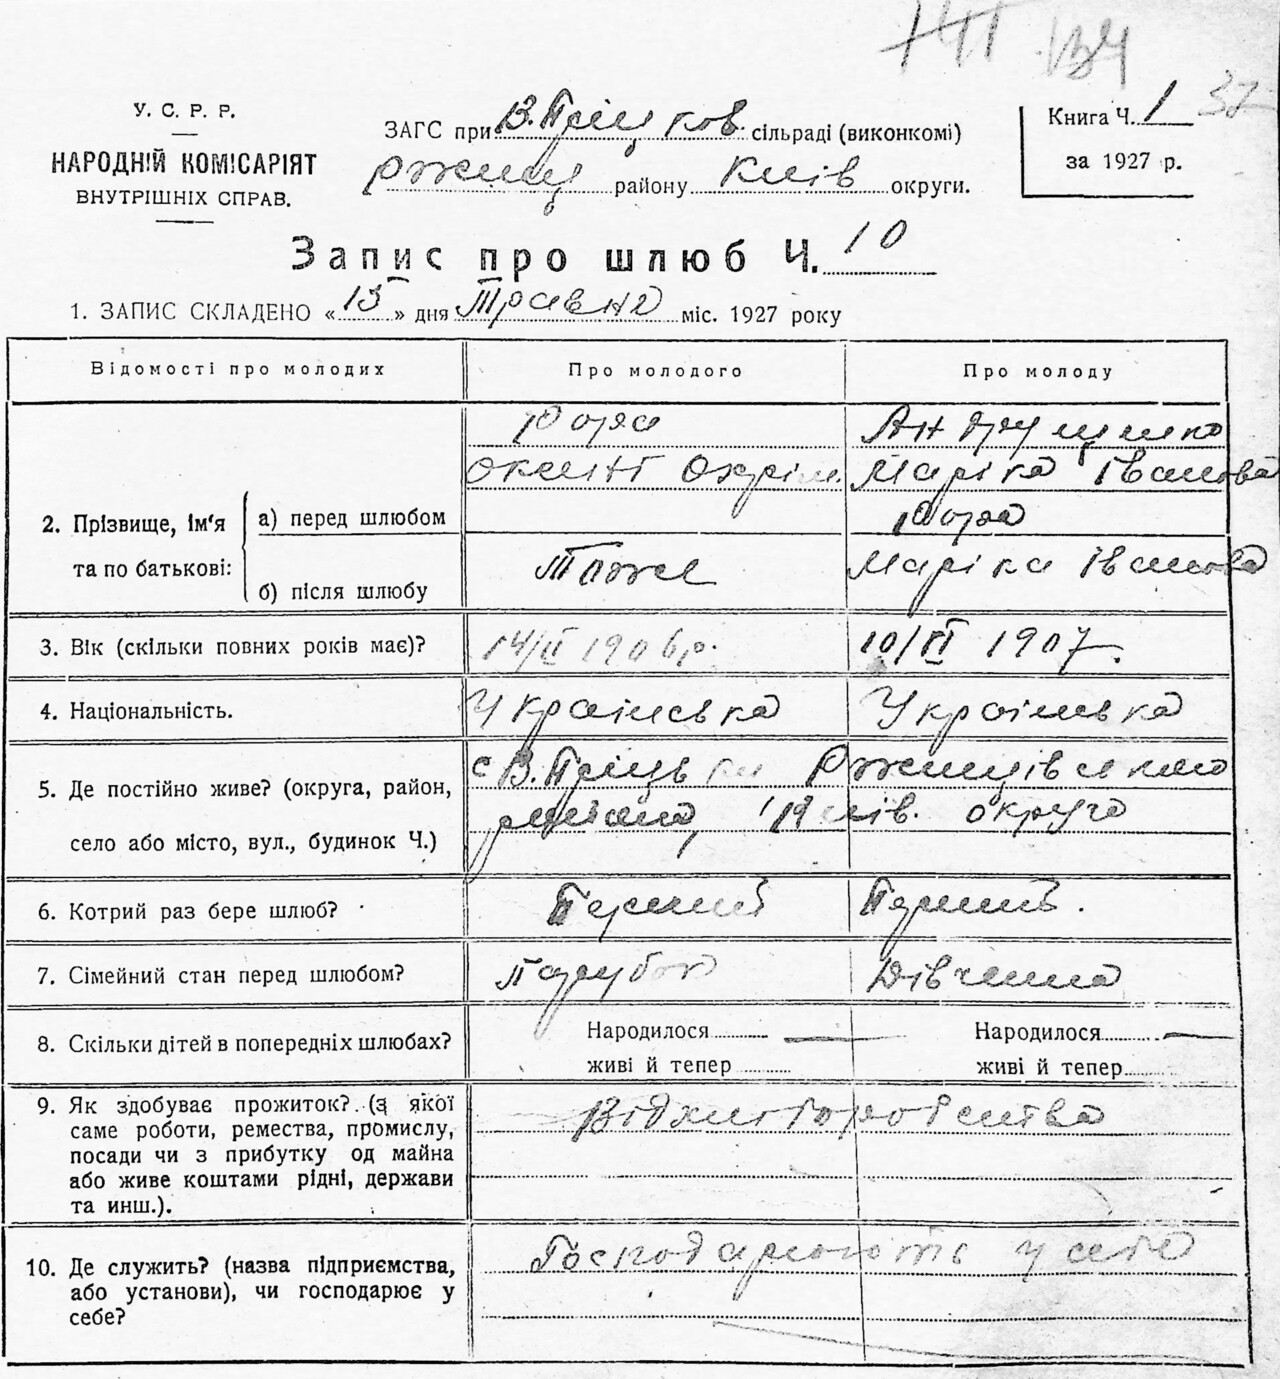 134
У. С. Р. Р.
НАРОДНІЙ КОМІСАРІЯТ
ВНУТРІШНІХ СПРАВ.
ЗАГС при В. Пріцьков сільраді (виконкомі)
Ржищ району Київ округи.
Книга Ч. 1
за 1927 р.
37
Запис про шлюб Ч. 10
1. ЗАПИС СКЛАДЕНО «15» дня Травня міс. 1927 року
Відомості про молодих
Про молодого
Про молоду
2. Прізвище, ім'я та по батькові:
а) перед шлюбом
Охрім.
Андрущенко
Маріка Іванова
б) після шлюбу
Тоже
Маріка Іванова
3. Вік (скільки повних років має)?
14/II 1906 р.
10/VI 1907.
4. Національність.
Українська
Українська
5. Де постійно живе? (округа, район,
село або місто, вул., будинок Ч.)
с В. Пріцьки Ржищівського
району, Київ. округа
6. Котрий раз бере шлюб?
Перший
Перший.
7. Сімейний стан перед шлюбом?
Парубок
Дівчина
8. Скільки дітей в попередніх шлюбах?
Народилося —
живі й тепер
Народилося —
живі й тепер
9. Як здобуває прожиток? (з якої
саме роботи, ремества, промислу,
посади чи з прибутку од майна
або живе коштами рідні, держави
та инш.).
Від хліборобства
10. Де служить? (назва підприємства,
або установи), чи господарює у
себе?
Господарюють у себе